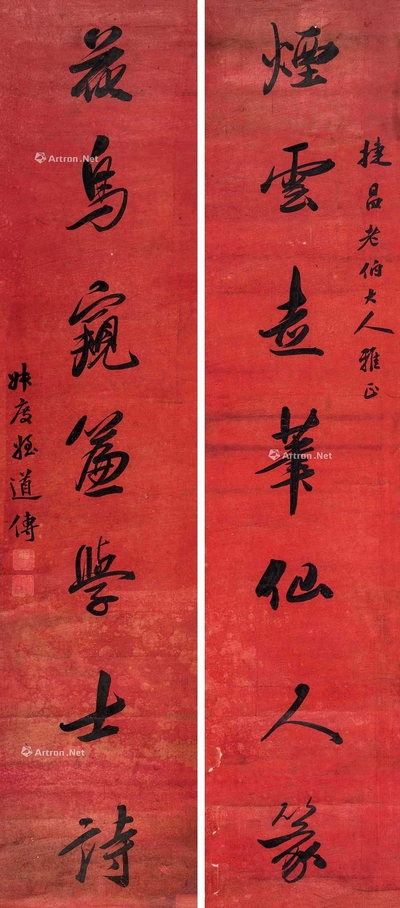 捷呂老伯大人雅正
煙雲走筆仙人篆
花鳥窺簾學士詩
道傳
Artron.Net
Artron.Net
Artron.Net
Artron.Net